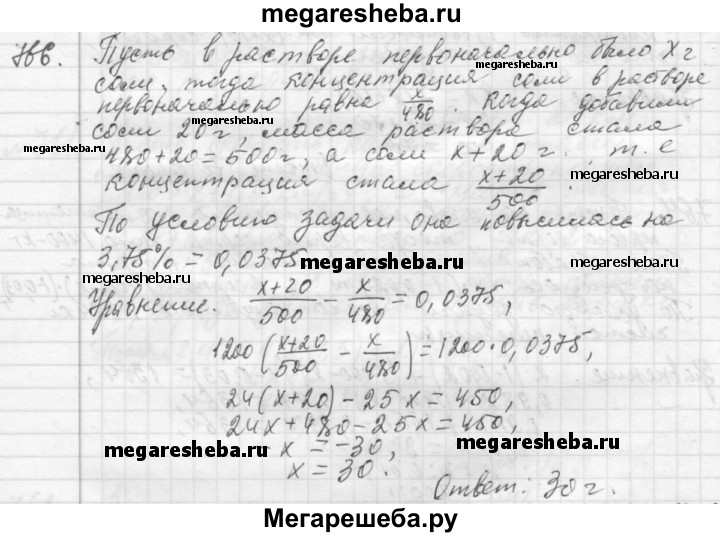 megaresheba.ru
766. Пусть в растворе первоначально было x г
megaresheba.ru
соли, тогда концентрация соли в растворе
megaresheba.ru
первоначально равна x/480. Когда добавили
соли 20 г, масса раствора стала
megaresheba.ru
480+20=500г, а соли x+20 г. т. е
megaresheba.ru
концентрация стала (x+20)/500.
По условию задачи она повысилась на
3,75% = 0,0375.
megaresheba.ru megaresheba.ru megaresheba.ru
Уравнение. (x+20)/500 - x/480 = 0,0375,
1200((x+20)/500 - x/480) = 1200·0,0375,
24(x+20) - 25x = 450,
24x + 480 - 25x = 450,
megaresheba.ru megaresheba.ru
-x = -30,
x = 30.
megaresheba.ru megaresheba.ru
Ответ: 30 г.
Мегарешеба.ру